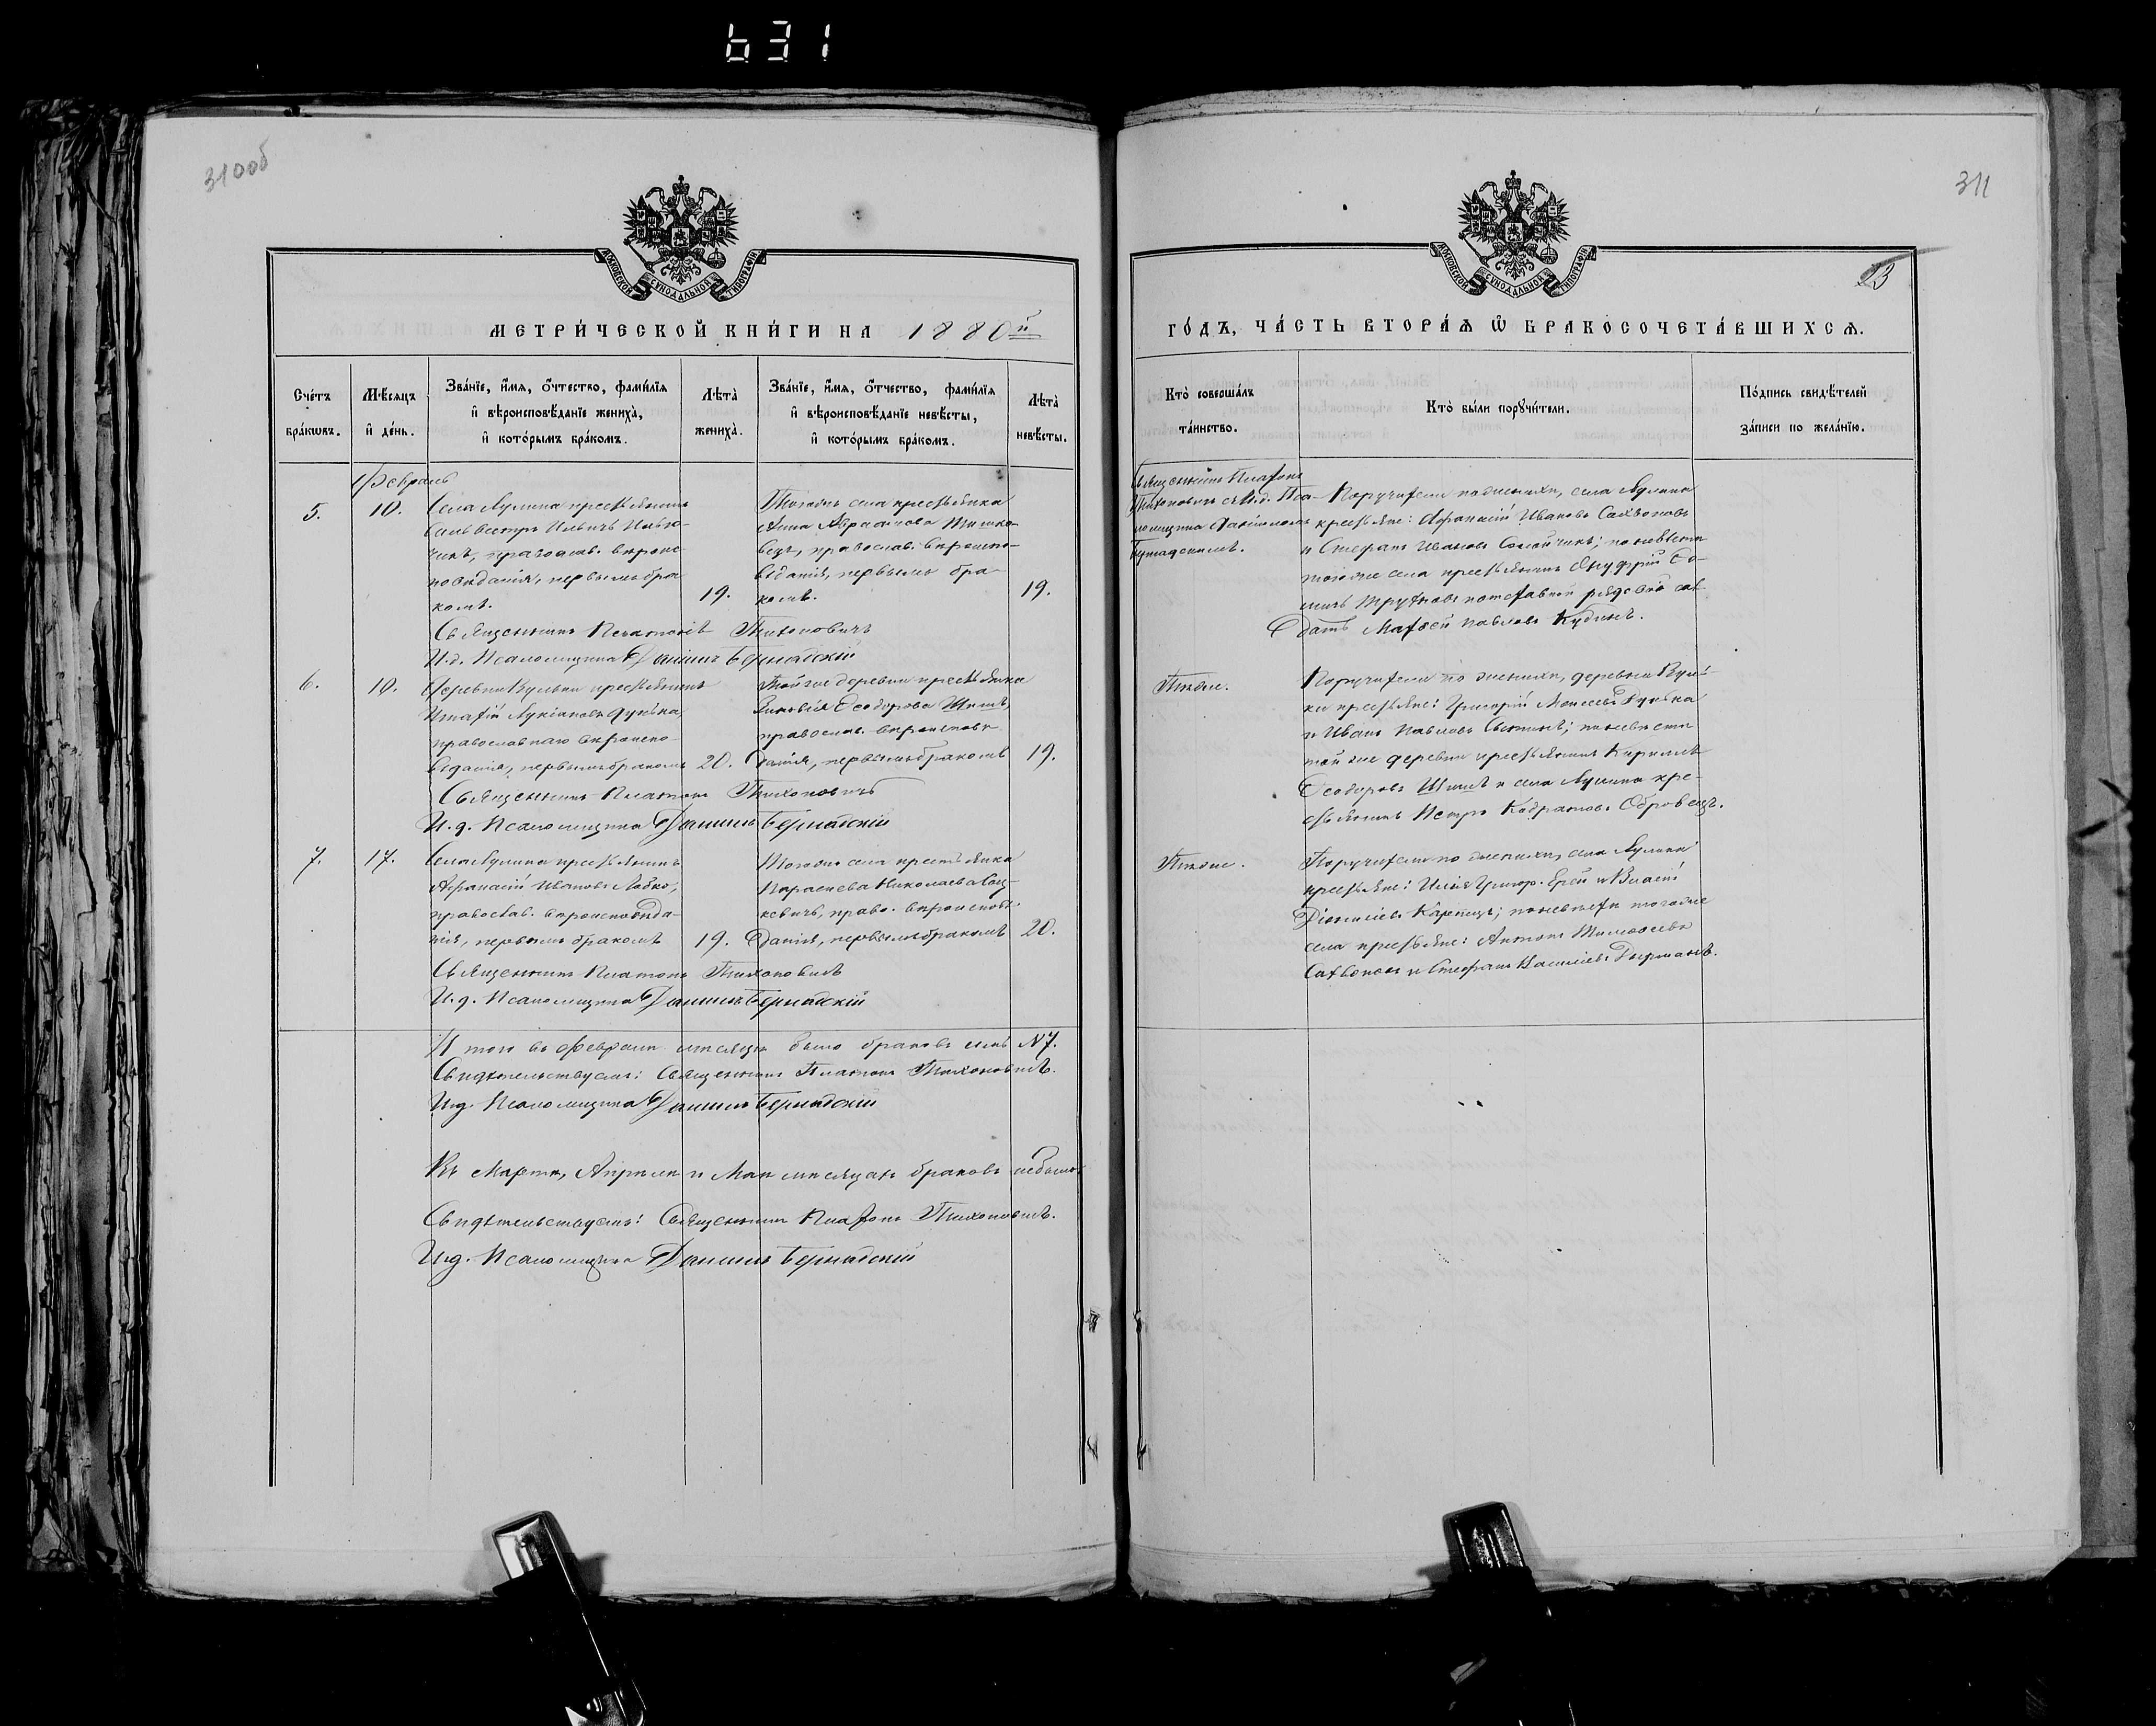 631
310об
311
МОСКОВСКОЙ СѴНОДАЛЬНОЙ ТИПОГРАФІИ
МОСКОВСКОЙ СѴНОДАЛЬНОЙ ТИПОГРАФІИ
23
МЕТРИ́ЧЕСКОЙ КНИ́ГИ НА 1880й
ГО́ДЪ, ЧА́СТЬ ВТОРА́Ѧ Ѿ БРАКОСОЧЕТА́ВШИХСѦ.
Сче́тъ бра́кѡвъ.
Мѣ́сяцъ и де́нь.
Зва́нїе, и́мя, о́тчество, фами́лїя
и вѣроисповѣ́данїе жениха̀,
и кото́рымъ бра́комъ.
Лѣта̀ жениха̀.
Зва́нїе, и́мя, о́тчество, фами́лїя
и вѣроисповѣ́данїе невѣ́сты,
и кото́рымъ бра́комъ.
Лѣта̀ невѣ́сты.
Кто̀ соверша́лъ та́инство.
Кто̀ бы́ли порꙋчи́тели.
По́дпись свидѣ́телей
за́писи по жела́нїю.
Февраль
5. 10. Села Лулина крестьянинъ
Сильвестръ Ильичъ
православ. вѣроис-
повѣданія, первымъ бра-
комъ. 19.
Тогоже села крестьянка
Анна
православ. вѣроиспо-
вѣданія, первымъ бра-
комъ. 19.
Священникъ Платонъ
Тихоновичъ съ И.д. Пса-
ломщика Даніиломъ
Бернадскимъ.
Поручители по женихѣ, села Лулина
крестьяне: Афанасій Ивановъ Сахвоновъ
и Стефанъ Ивановъ по невѣстѣ
тогоже села крестьянинъ Онуфрій
отставной рядовой сол-
датъ Матѳей Павловъ Кубикъ.
Священникъ Платонъ Тихоновичъ
И.д. Псаломщика Даніилъ Бернадскій
6. 10. Деревни Вульки крестьянинъ
Игнатій Лукіановъ Лунька,
православнаго вѣроиспо-
вѣданія, первымъ бракомъ 20.
Той же деревни крестьянка
Зиновія Ѳеодорова Шишъ,
православ. вѣроисповѣ-
данія, первымъ бракомъ 19.
Тѣже.
Поручители по женихѣ, деревни Вуль-
ки крестьяне: Григорій Моисеевъ Лунька
и Иванъ Павловъ по невѣстѣ
той же деревни крестьянинъ Кириллъ
Ѳеодоровъ Шишъ и села Лулина кре-
стьянинъ Петръ Кодратовъ Обровецъ.
Священникъ Платонъ Тихоновичъ
И.д. Псаломщика Даніилъ Бернадскій
7. 17. Села Лулина крестьянинъ
Афанасій Ивановъ Лобко,
православ. вѣроисповѣда-
нія, первымъ бракомъ 19.
Тогоже села крестьянка
Параскева Николаева
право. вѣроисповѣ-
данія, первымъ бракомъ 20.
Тѣже.
Поручители по женихѣ, села Лулина
крестьяне: Илія Григор. и Власій
Діонисіевъ по невѣстѣ тогоже
села крестьяне: Антонъ Тимоѳеевъ
Сахвоновъ и Стефанъ Василіевъ Дырманъ.
Священникъ Платонъ Тихоновичъ
И.д. Псаломщика Даніилъ Бернадскій
И того въ Февралѣ мѣсяцѣ было браковъ семь №7.
Свидѣтельствуемъ: Священникъ Платонъ Тихоновичъ.
И.д. Псаломщика Даніилъ Бернадскій
Въ Мартѣ, Апрѣлѣ и Маѣ мѣсяцахъ браковъ небыло
Свидѣтельствуемъ: Священникъ Платонъ Тихоновичъ.
И.д. Псаломщика Даніилъ Бернадскій